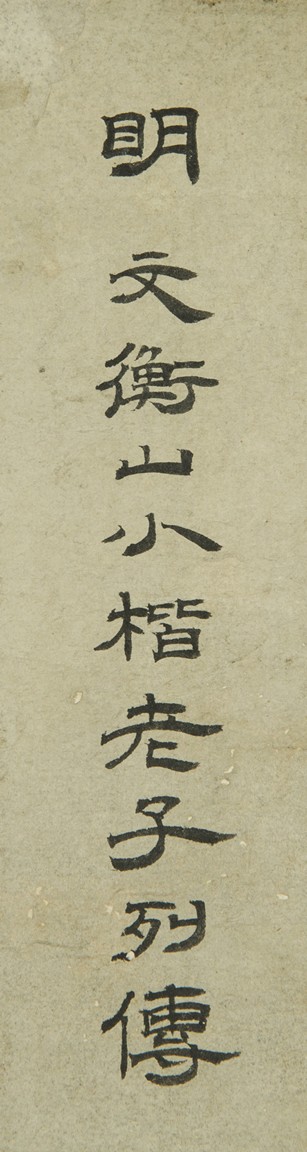 明 文衡山小楷老子列傳